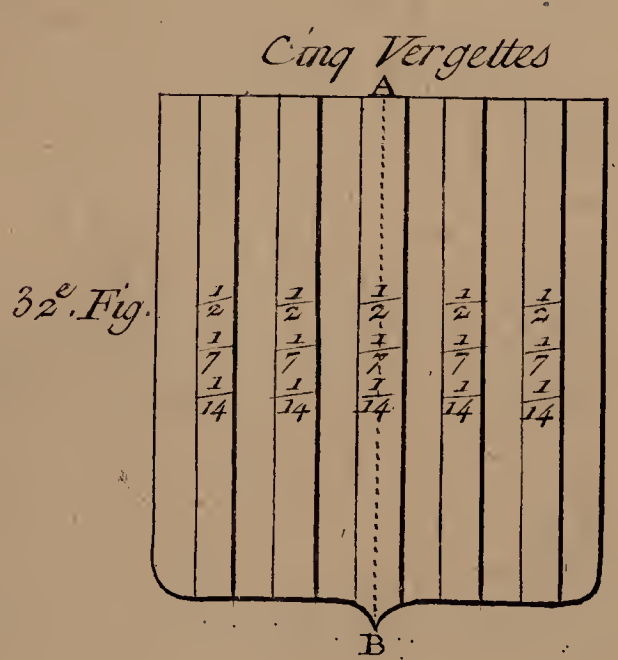 Cinq Vergettes
A
32e. Fig.
1/2 1/2 1/2 1/2 1/2
1/7 1/7 1/7 1/7 1/7
1/14 1/14 1/14 1/14 1/14
B